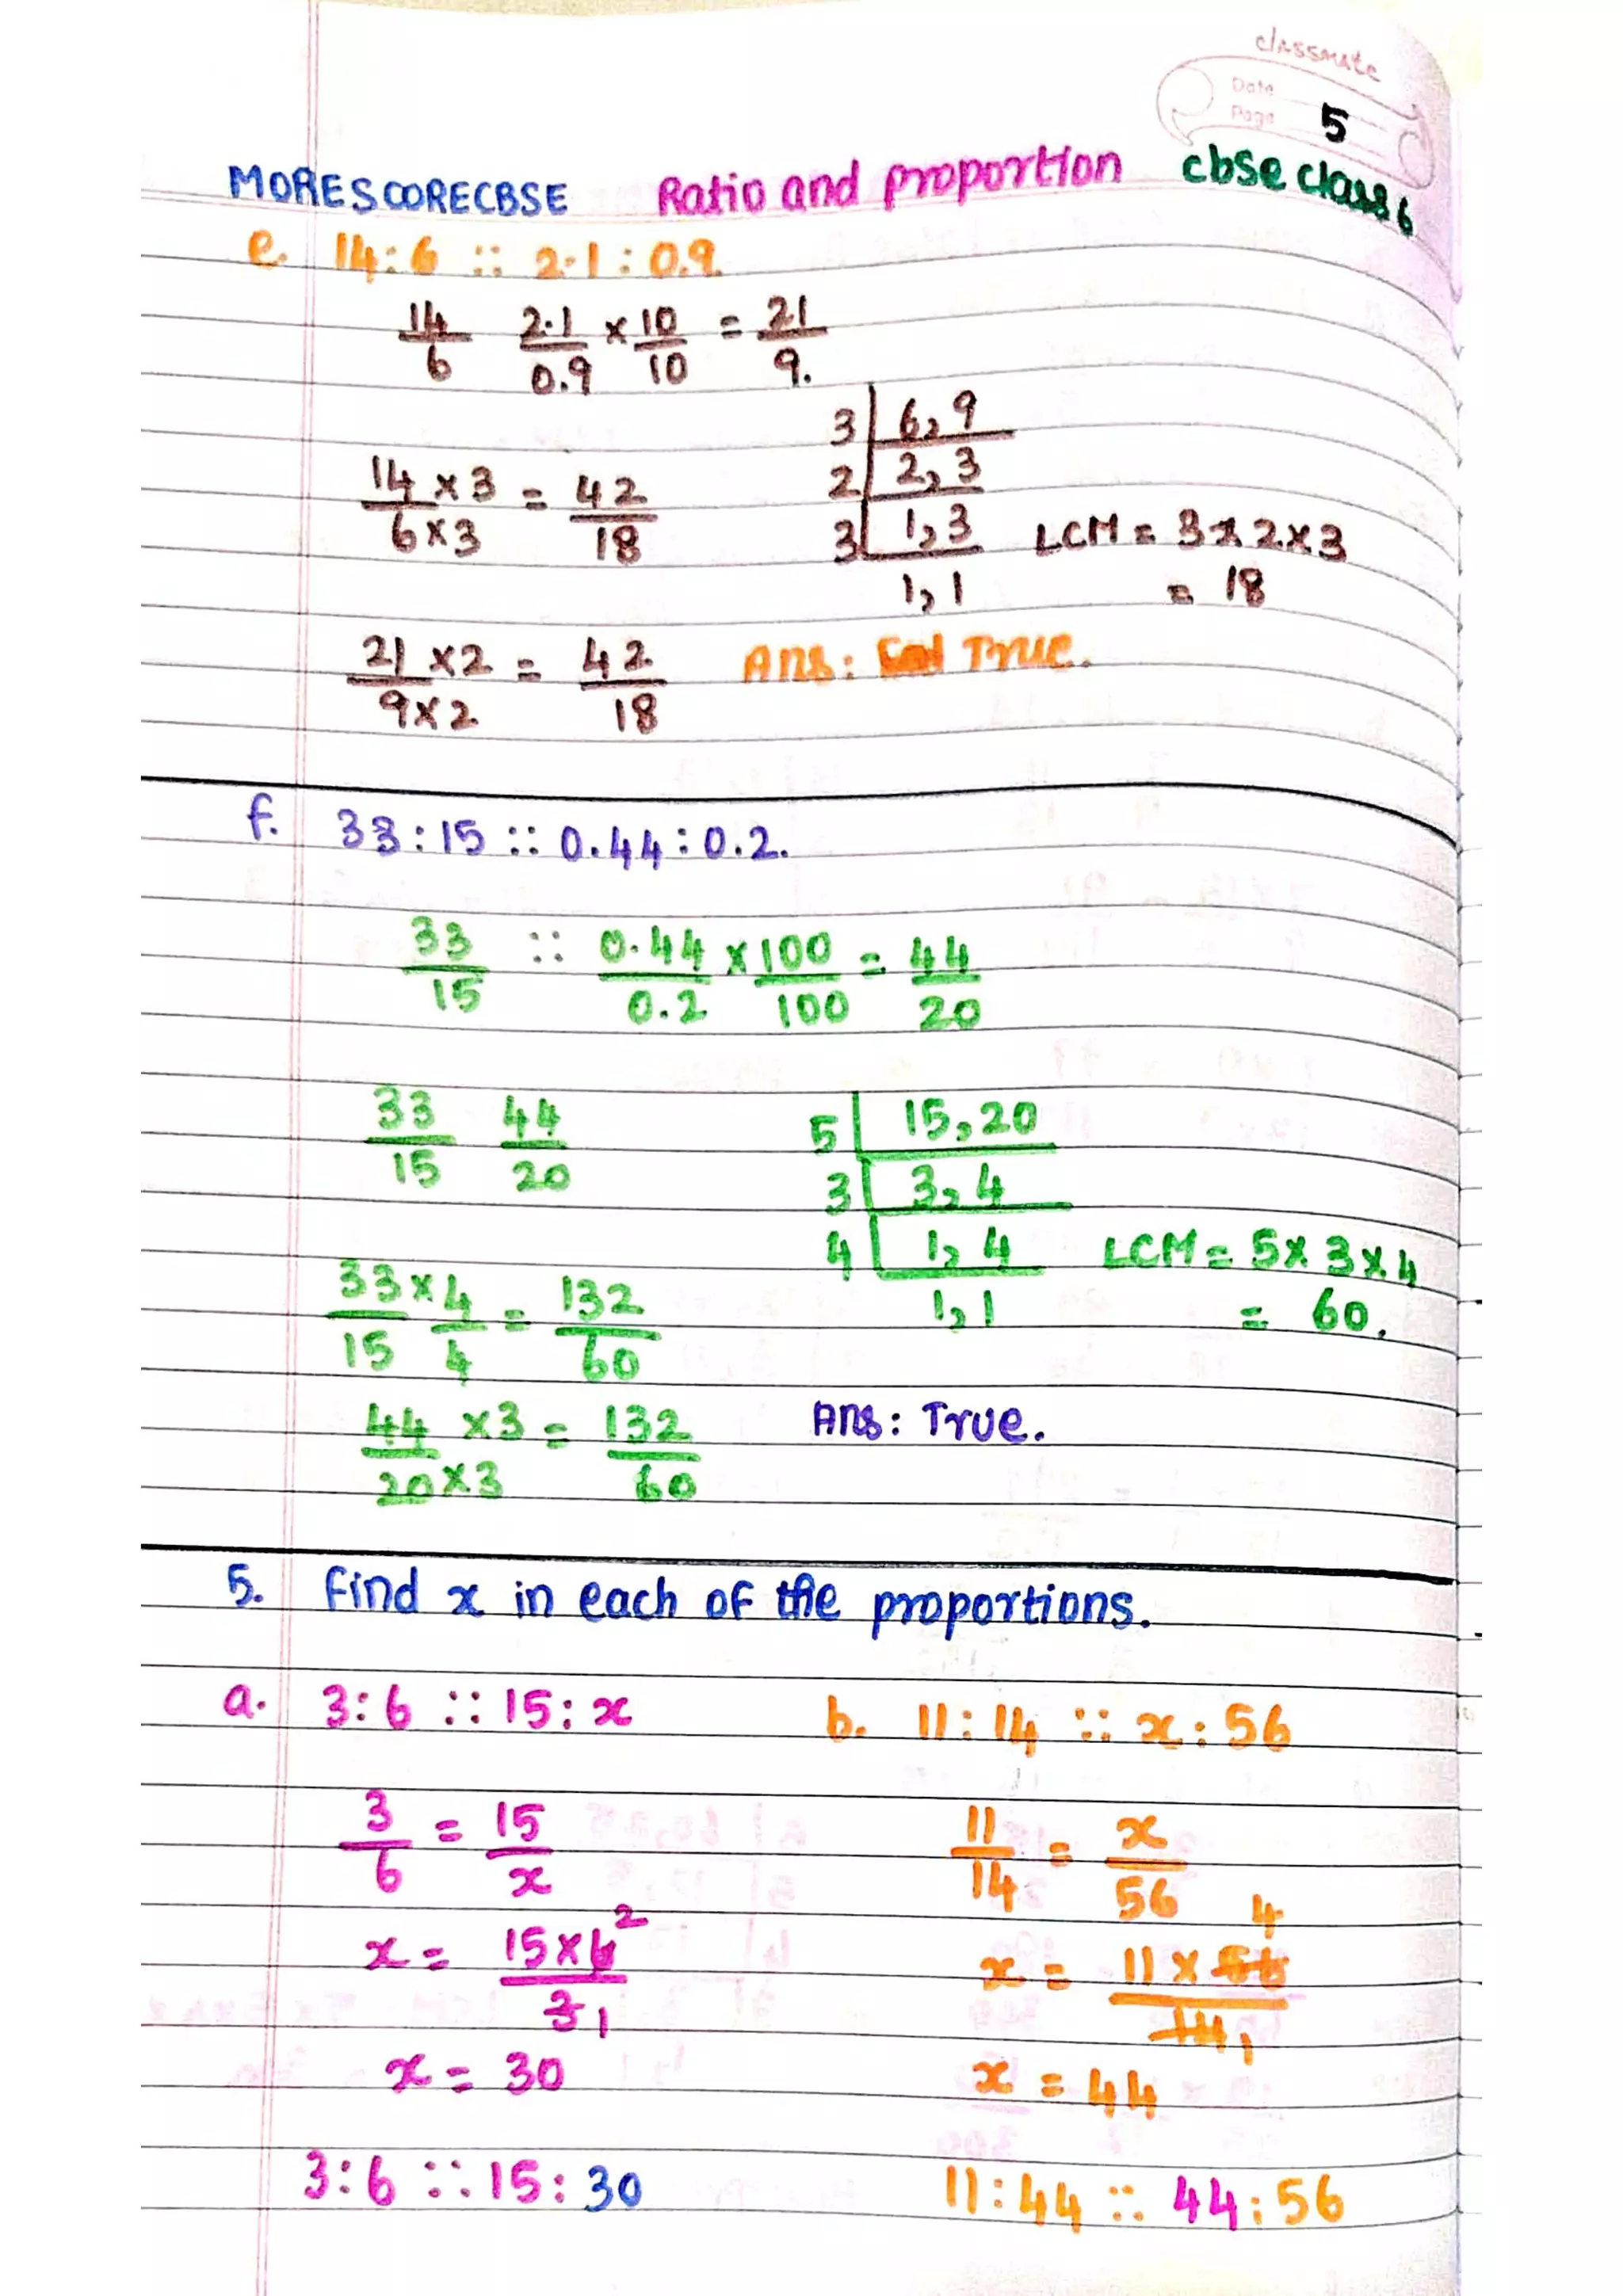 classmate
Date
Page 5
MORESCORECBSE Ratio and proportion cbse class 6
e. 14:6 :: 2.1:0.9
14/6 2.1/0.9 × 10/10 = 21/9.
3 | 6, 9
2 | 2, 3
14×3/6×3 = 42/18
3 | 1, 3 LCM = 3×2×3
1, 1 = 18
21×2/9×2 = 42/18 Ans: True.
f. 33:15 :: 0.44:0.2.
33/15 :: 0.44/0.2 × 100/100 = 44/20
33/15 44/20
5 | 15, 20
3 | 3, 4
4 | 1, 4 LCM = 5×3×4
1, 1 = 60.
33/15 × 4/4 = 132/60
44×3/20×3 = 132/60 Ans: True.
5. Find x in each of the proportions.
a. 3:6 :: 15:x b. 11:14 :: x:56
3/6 = 15/x 11/14 = x/56
x = 15×6 2/3 1 x = 11×56 4/14 1
x = 30 x = 44
3:6 :: 15:30 11:44 :: 44:56